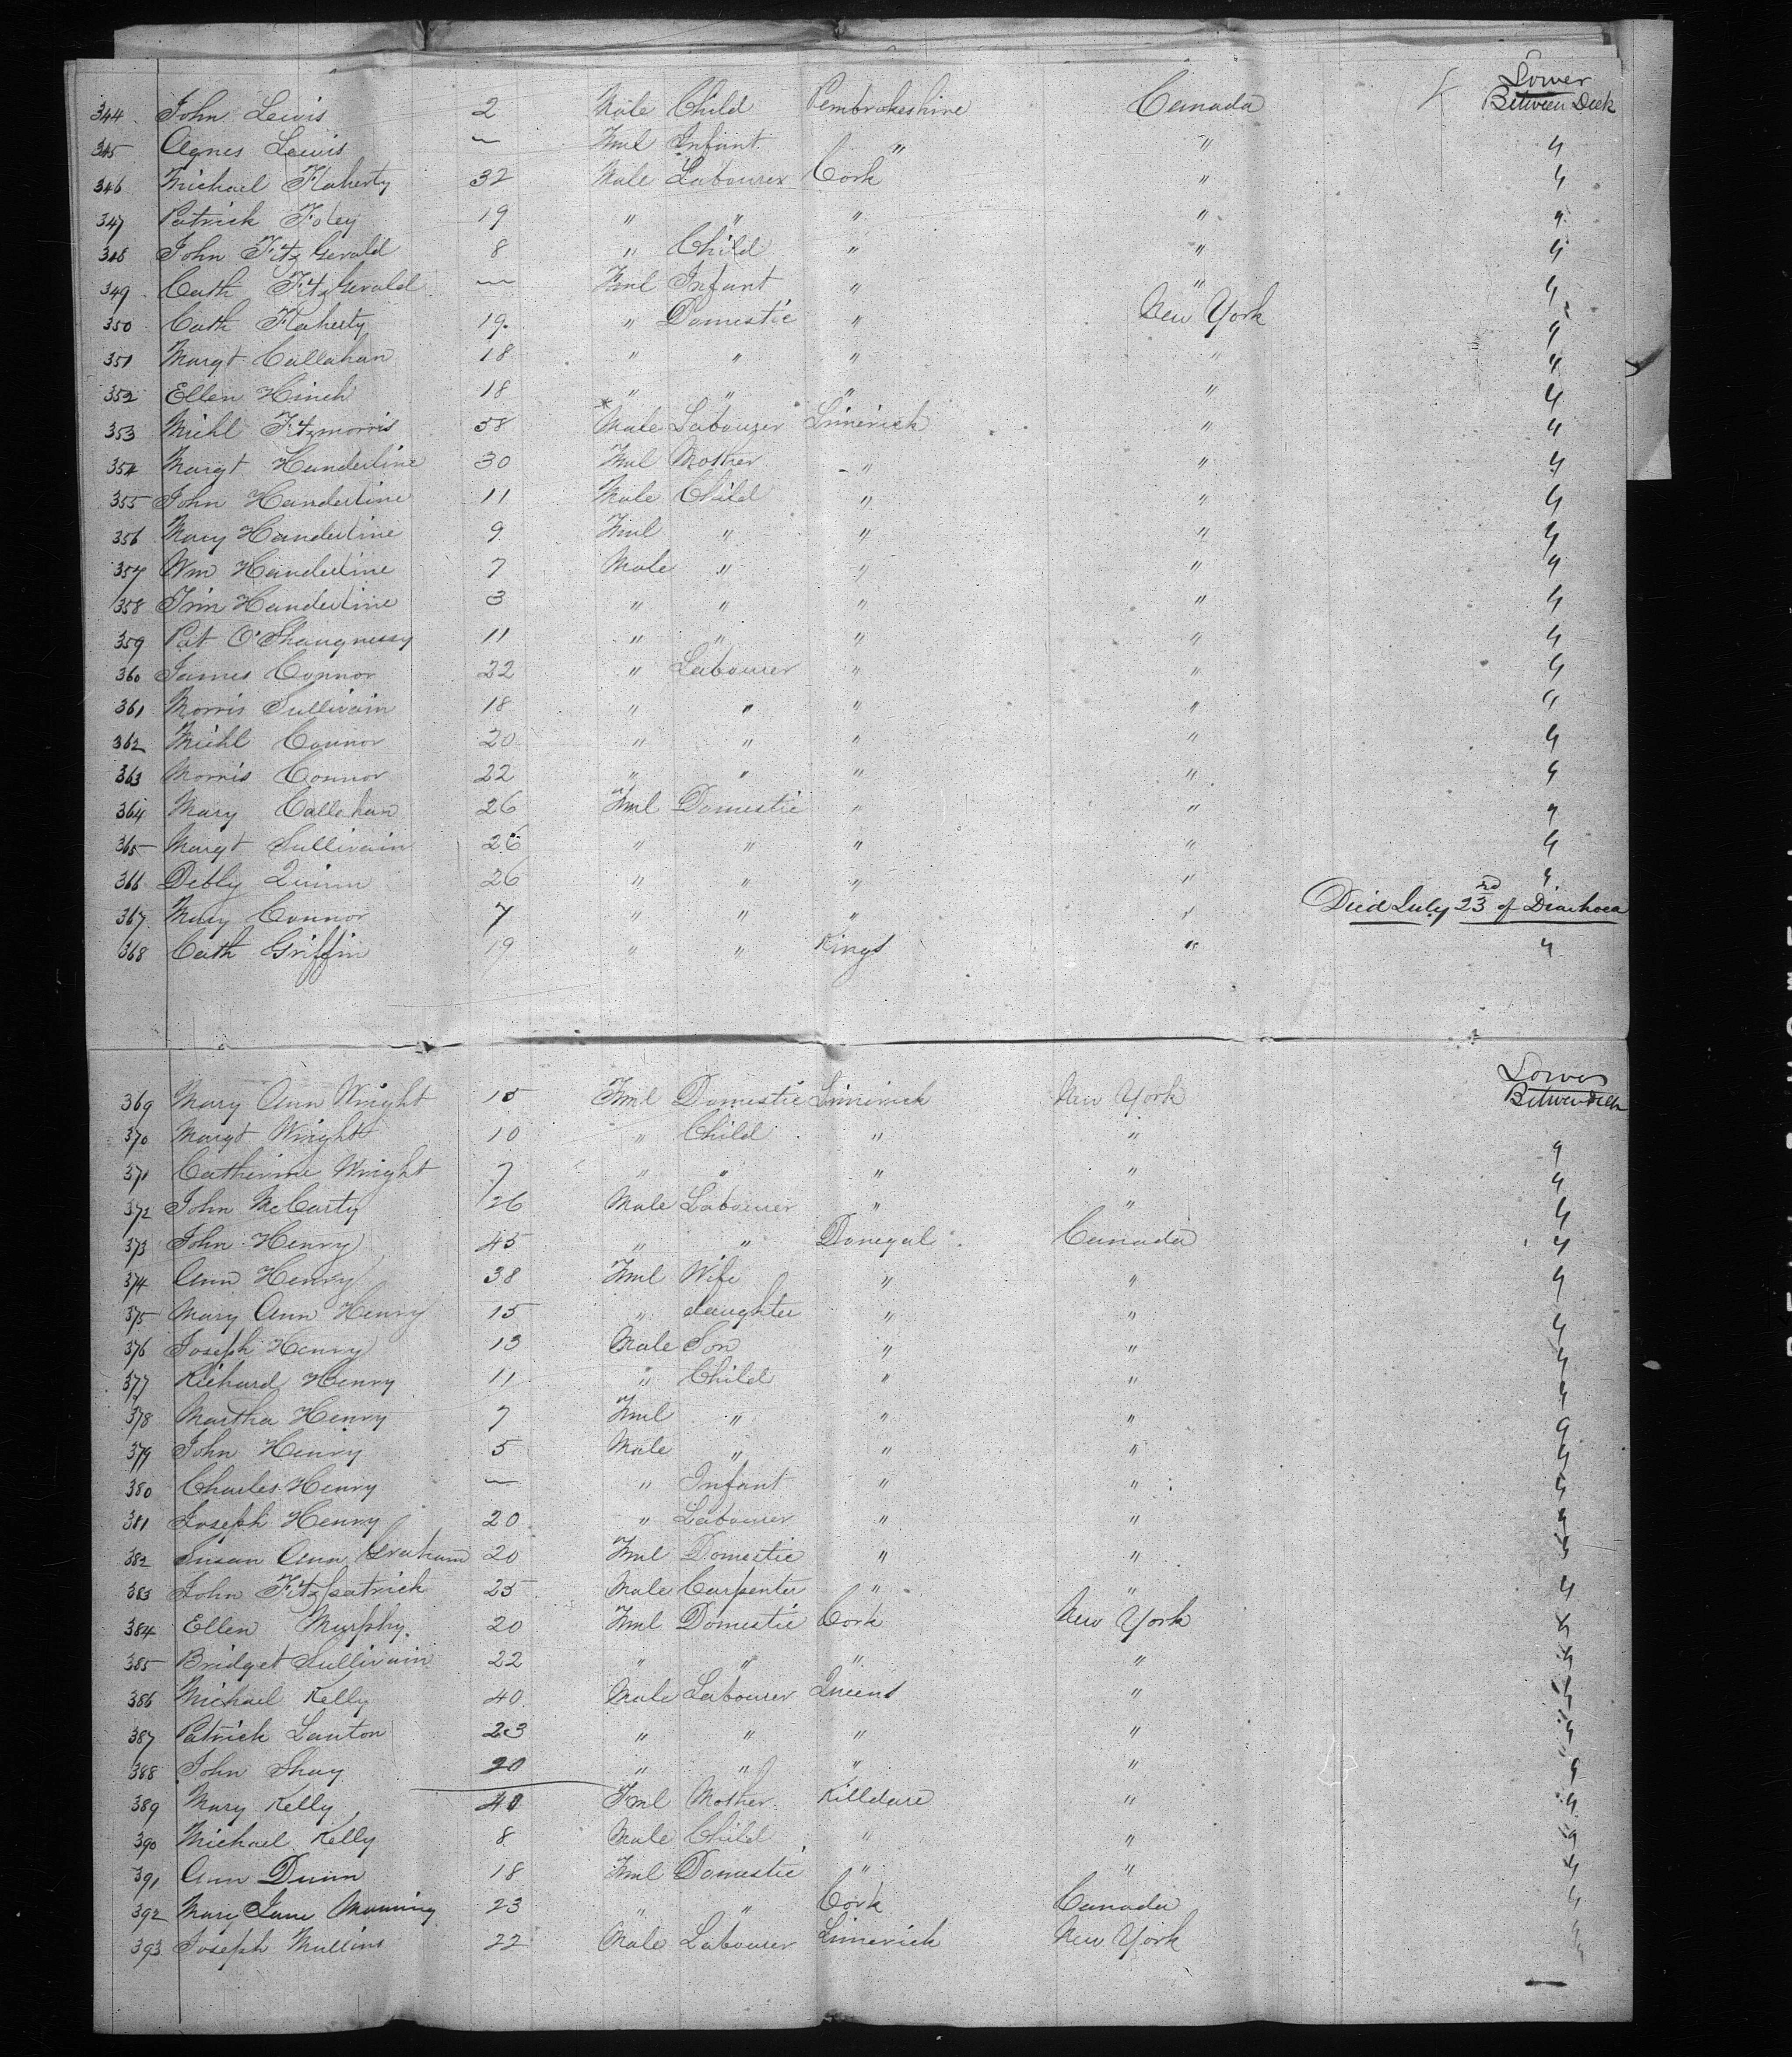 Lower
344 John Lewis 2 Male Child Pembrokeshire Canada Between Deck
345 Agnes Lewis — Fml Infant " " "
346 Michael Flaherty 32 Male Labourer Cork " "
347 Patrick Foley 19 " " " " "
348 John FitzGerald 8 " Child " " "
349 Cath FitzGerald — Fml Infant " " "
350 Cath Flaherty 19 " Domestic " New York "
351 Margt Callahan 18 " " " " "
352 Ellen Hinch 18 " " " " "
353 Michl Fitzmorris 58 * Male Labourer Limerick " "
354 Margt Handerline 30 Fml Mother " " "
355 John Handerline 11 Male Child " " "
356 Mary Handerline 9 Fml " " " "
357 Wm Handerline 7 Male " " " "
358 Tim Handerline 3 " " " " "
359 Pat O'Shaugnessy 11 " " " " "
360 James Connor 22 " Labourer " " "
361 Morris Sullivain 18 " " " " "
362 Michl Connor 20 " " " " "
363 Morris Connor 22 " " " " "
364 Mary Callahan 26 Fml Domestic " " "
365 Margt Sullivain 26 " " " " "
366 Debly Quinn 26 " " " " "
367 Mary Connor 7 " " " " Died July 23rd of Diarhoea
368 Cath Griffin 19 " " Kings " "
Lower
369 Mary Ann Wright 15 Fml Domestic Limerick New York Between Deck
370 Margt Wright 10 " Child " " "
371 Catherine Wright 7 " " " " "
372 John McCarty 26 Male Labourer " " "
373 John Henry 45 " " Donegal Canada "
374 Ann Henry 38 Fml Wife " " "
375 Mary Ann Henry 15 " daughter " " "
376 Joseph Henry 13 Male Son " " "
377 Richard Henry 11 " Child " " "
378 Martha Henry 7 Fml " " " "
379 John Henry 5 Male " " " "
380 Charles Henry — " Infant " " "
381 Joseph Henry 20 " Labourer " " "
382 Susan Ann Graham 20 Fml Domestic " " "
383 John Fitzpatrick 25 Male Carpenter " " "
384 Ellen Murphy 20 Fml Domestic Cork New York "
385 Bridget Sullivain 22 " " " " "
386 Michael Kelly 40 Male Labourer Queens " "
387 Patrick Lanton 23 " " " " "
388 John Shay 20 " " " " "
389 Mary Kelly 40 Fml Mother Killdare " "
390 Michael Kelly 8 Male Child " " "
391 Ann Dunn 18 Fml Domestic " " "
392 Mary Jane Manning 23 " " Cork Canada "
393 Joseph Mullins 22 Male Labourer Limerick New York "